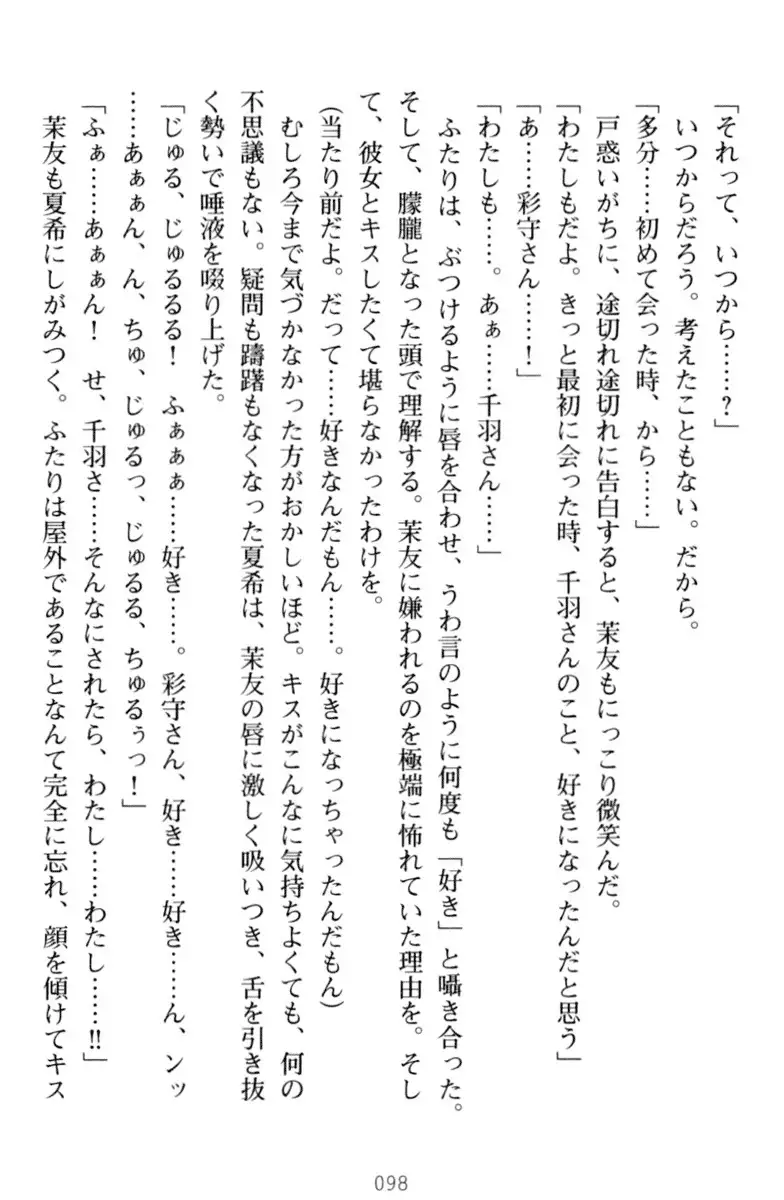 「それって、いつから……？」
いつからだろう。考えたこともない。だから。
「多分……初めて会った時、から……」
戸惑いがちに、途切れ途切れに告白すると、茉友もにっこり微笑んだ。
「わたしもだよ。きっと最初に会った時、千羽さんのこと、好きになったんだと思う」
「あ……彩守さん……！」
「わたしも……。あぁ……千羽さん……」
ふたりは、ぶつけるように唇を合わせ、うわ言のように何度も「好き」と囁き合った。
そして、朦朧となった頭で理解する。茉友に嫌われるのを極端に怖れていた理由を。そし
て、彼女とキスしたくて堪らなかったわけを。
（当たり前だよ。だって……好きなんだもん……。好きになっちゃったんだもん）
むしろ今まで気づかなかった方がおかしいほど。キスがこんなに気持ちよくても、何の
不思議もない。疑問も躊躇もなくなった夏希は、茉友の唇に激しく吸いつき、舌を引き抜
く勢いで唾液を啜り上げた。
「じゅる、じゅるるる！　ふぁぁぁ……好き……。彩守さん、好き……好き……ん、ンッ
……あぁぁん、ん、ちゅ、じゅるっ、じゅるる、ちゅるぅっ！」
「ふぁ……あぁぁん！　せ、千羽さ……そんなにされたら、わたし……わたし……!!」
茉友も夏希にしがみつく。ふたりは屋外であることなんて完全に忘れ、顔を傾けてキス
098